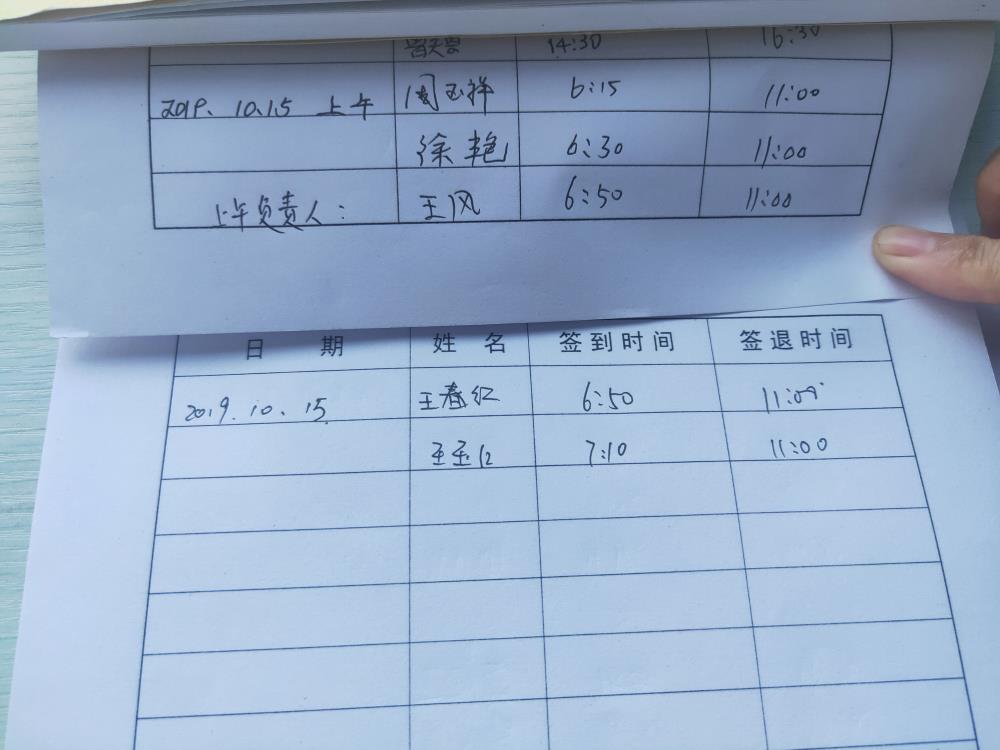 14:30 16:30
2019.10.15 上午 周玉祥 6:15 11:00
徐艳 6:30 11:00
上午负责人: 王风 6:50 11:00
日 期 姓 名 签到时间 签退时间
2019.10.15 王春红 6:50 11:00
王玉红 7:10 11:00